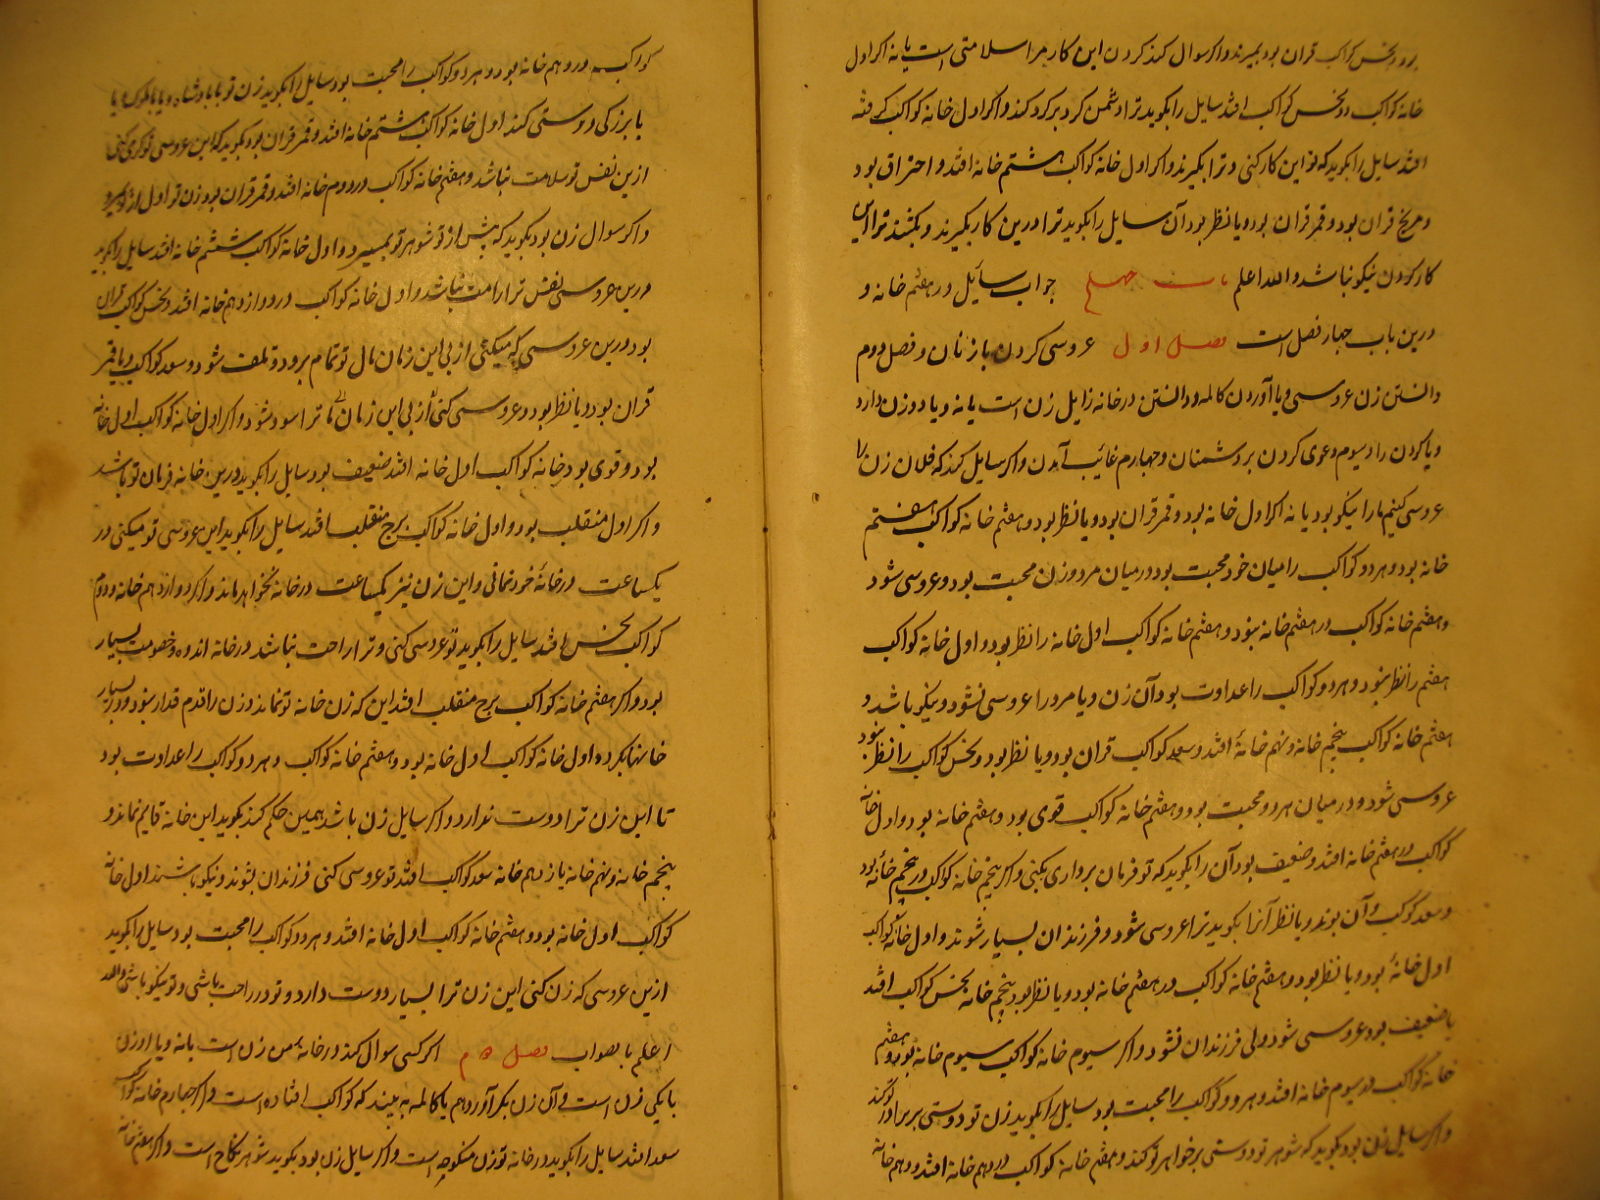 بود و نحس کواکب قران بود بمیرند و اگر سوال کند کردن این کار مرا سلامتی است یا نه اگر اول
خانه کواکب و نحس کواکب افتد سایل را بگوید ترا دشمن کرد بر کرد کند و اگر اول خانه کواکب کرفته
افتد سایل را بگوید که تو این کار کنی و ترا بگیرند و اگر اول خانه کواکب هشتم خانه افتد و احتراق بود
و مریخ قران بود و قمر قران بود و یا نظر بود آن سایل را بگوید ترا درین کار بگیرند و بکشند ترا این
کار کردن نیکو نباشد والله اعلم باب چهلم جواب سایل در هفتم خانه و
درین باب چهار فصل است فصل اول عروسی کردن با زنان و فصل دوم
دانستن زن عروسی و یا آوردن کالمه و دانستن در خانه زایل زن است یا نه و یا دو زن دارد
و یا کردن را و سیوم دعوی کردن بر دشمنان و چهارم غائب آمدن و اگر سایل کند که فلان زن را
عروسی کنیم ما را نیکو بود یا نه اگر اول خانه بود و قمر قران بود و یا نظر بود و هفتم خانه کواکب هفتم
خانه بود و هر دو کواکب را میان خود محبت بود در میان مرد و زن محبت بود و عروسی شود
و هفتم خانه کواکب در هفتم خانه نبود و هفتم خانه کواکب اول خانه را نظر بود و اول خانه کواکب
هفتم را نظر نبود و هر دو کواکب را عداوت بود آن زن و یا مرد را عروسی نشود و نیکو باشد و
هفتم خانه کواکب پنجم خانه و نهم خانهٔ افتد و سعد کواکب قران بود و یا نظر بود و نحس کواکب را نظر نبود
عروسی شود و در میان هر دو محبت بود و هفتم خانه کواکب قوی بود و هفتم خانه بود و اول خانه
کواکب در هفتم خانه افتد و ضعیف بود آن را بگوید که تو فرمان برداری بکنی و اگر پنجم خانه کواکب در پنجم خانه بود
و سعد کوکب آن بوند و یا نظر آنرا بگوید ترا عروسی شود و فرزندان بسیار شوند و اول خانه کواکب
اول خانهٔ بود و یا نظر بود و هفتم خانه کواکب در هفتم خانه بود و یا نظر بود پنجم خانه نحس کواکب افتد
یا ضعیف بود عروسی شود ولی فرزندان نشود و اگر سیوم خانه کواکب سیوم خانه بود و هفتم
خانه کواکب در سیوم خانه افتد و هر دو کواکب را محبت بود سایل را بگوید زن تو دوستی برادر تو کند
و اگر سایل زن بود بگوید که شوهر تو دوستی بر خواهر تو کند و هفتم خانه کواکب در دهم خانه افتد و دهم خانه
کواکب در دهم خانه بود و هر دو کواکب را محبت بود سایل را بگوید زن تو با پادشاه و یا
یا بزرگی دوستی کند اول خانه کواکب هشتم خانه افتد و قمر قران بود بگوید که این عروسی تو کردی کنی
ازین نفس تو سلامت نباشد و هفتم خانه کواکب در دوم خانه افتد و قمر قران بود زن تو اول از تو میرد
و اگر سوال زن بود بگوید که پیش از تو شوهر تو بمیرد و اول خانه کواکب ششم خانه افتد سایل را بگوید
درین عروسی نفس ترا راحت نباشد و اول خانه کواکب در دوازدهم خانه افتد و نحس کواکب قران
بود درین عروسی که میکنی از پی این زنان مال تو تمام برود و تلف شود و سعد کواکب و یا قمر
قران بود و یا نظر بود و عروسی کنی از پی این زمان ترا سود شود و اگر اول خانه کواکب اول خانه
بود و قوی بود خانه کواکب اول خانه افتد ضعیف بود سایل را بگوید درین خانه فرمان تو باشد
و اگر اول منقلب بود و اول خانه کواکب برج منقلب افتد سایل را بگوید این عروسی تو میکنی در
یکساعت در خانهٔ خود نمانی و این زن نیز یکساعت در خانه نخواهد ماند و اگر دوازدهم خانه و دوم
کواکب نحس افتد سایل را بگوید تو عروسی کنی و ترا راحت نباشد در خانه اندوه و خصومت بسیار
بود و اگر هفتم خانه کواکب برج منقلب افتد این که زن خانه تو نماند و زن را قدم قدار نبود و بسیار
خانها بکرده اول خانه کواکب اول خانه بود و هفتم خانه کواکب و هر دو کواکب را عداوت بود
تا این زن ترا دوست ندارد و اگر سایل زن باشد همین حکم کند بگوید این خانه قایم نماند و
پنجم خانه و نهم خانه یازدهم خانه سعد کواکب افتد تو عروسی کنی فرزندان بشوند و نیکو باشند اول خانه
کواکب اول خانه بود و هفتم خانه کواکب اول خانه افتد و هر دو کواکب را محبت بود سایل را بگوید
ازین عروسی که زن کنی این زن ترا بسیار دوست دارد و تو در راحت باشی و تو نیکو باشی والله
اعلم بالصواب فصل دوم اگر کسی سوال کند در خانه من زن است یا نه و یا او زن
یا یکی زن است و آن زن بکر آوردهم یا کالمه به بیند که کواکب افتاده است و اگر چهارم خانه کواکب
سعد افتد سایل را بگوید در خانه تو زن منکوحه است و اگر سایل زن بود بگوید شوهر نکاح است و اگر هفتم خانه